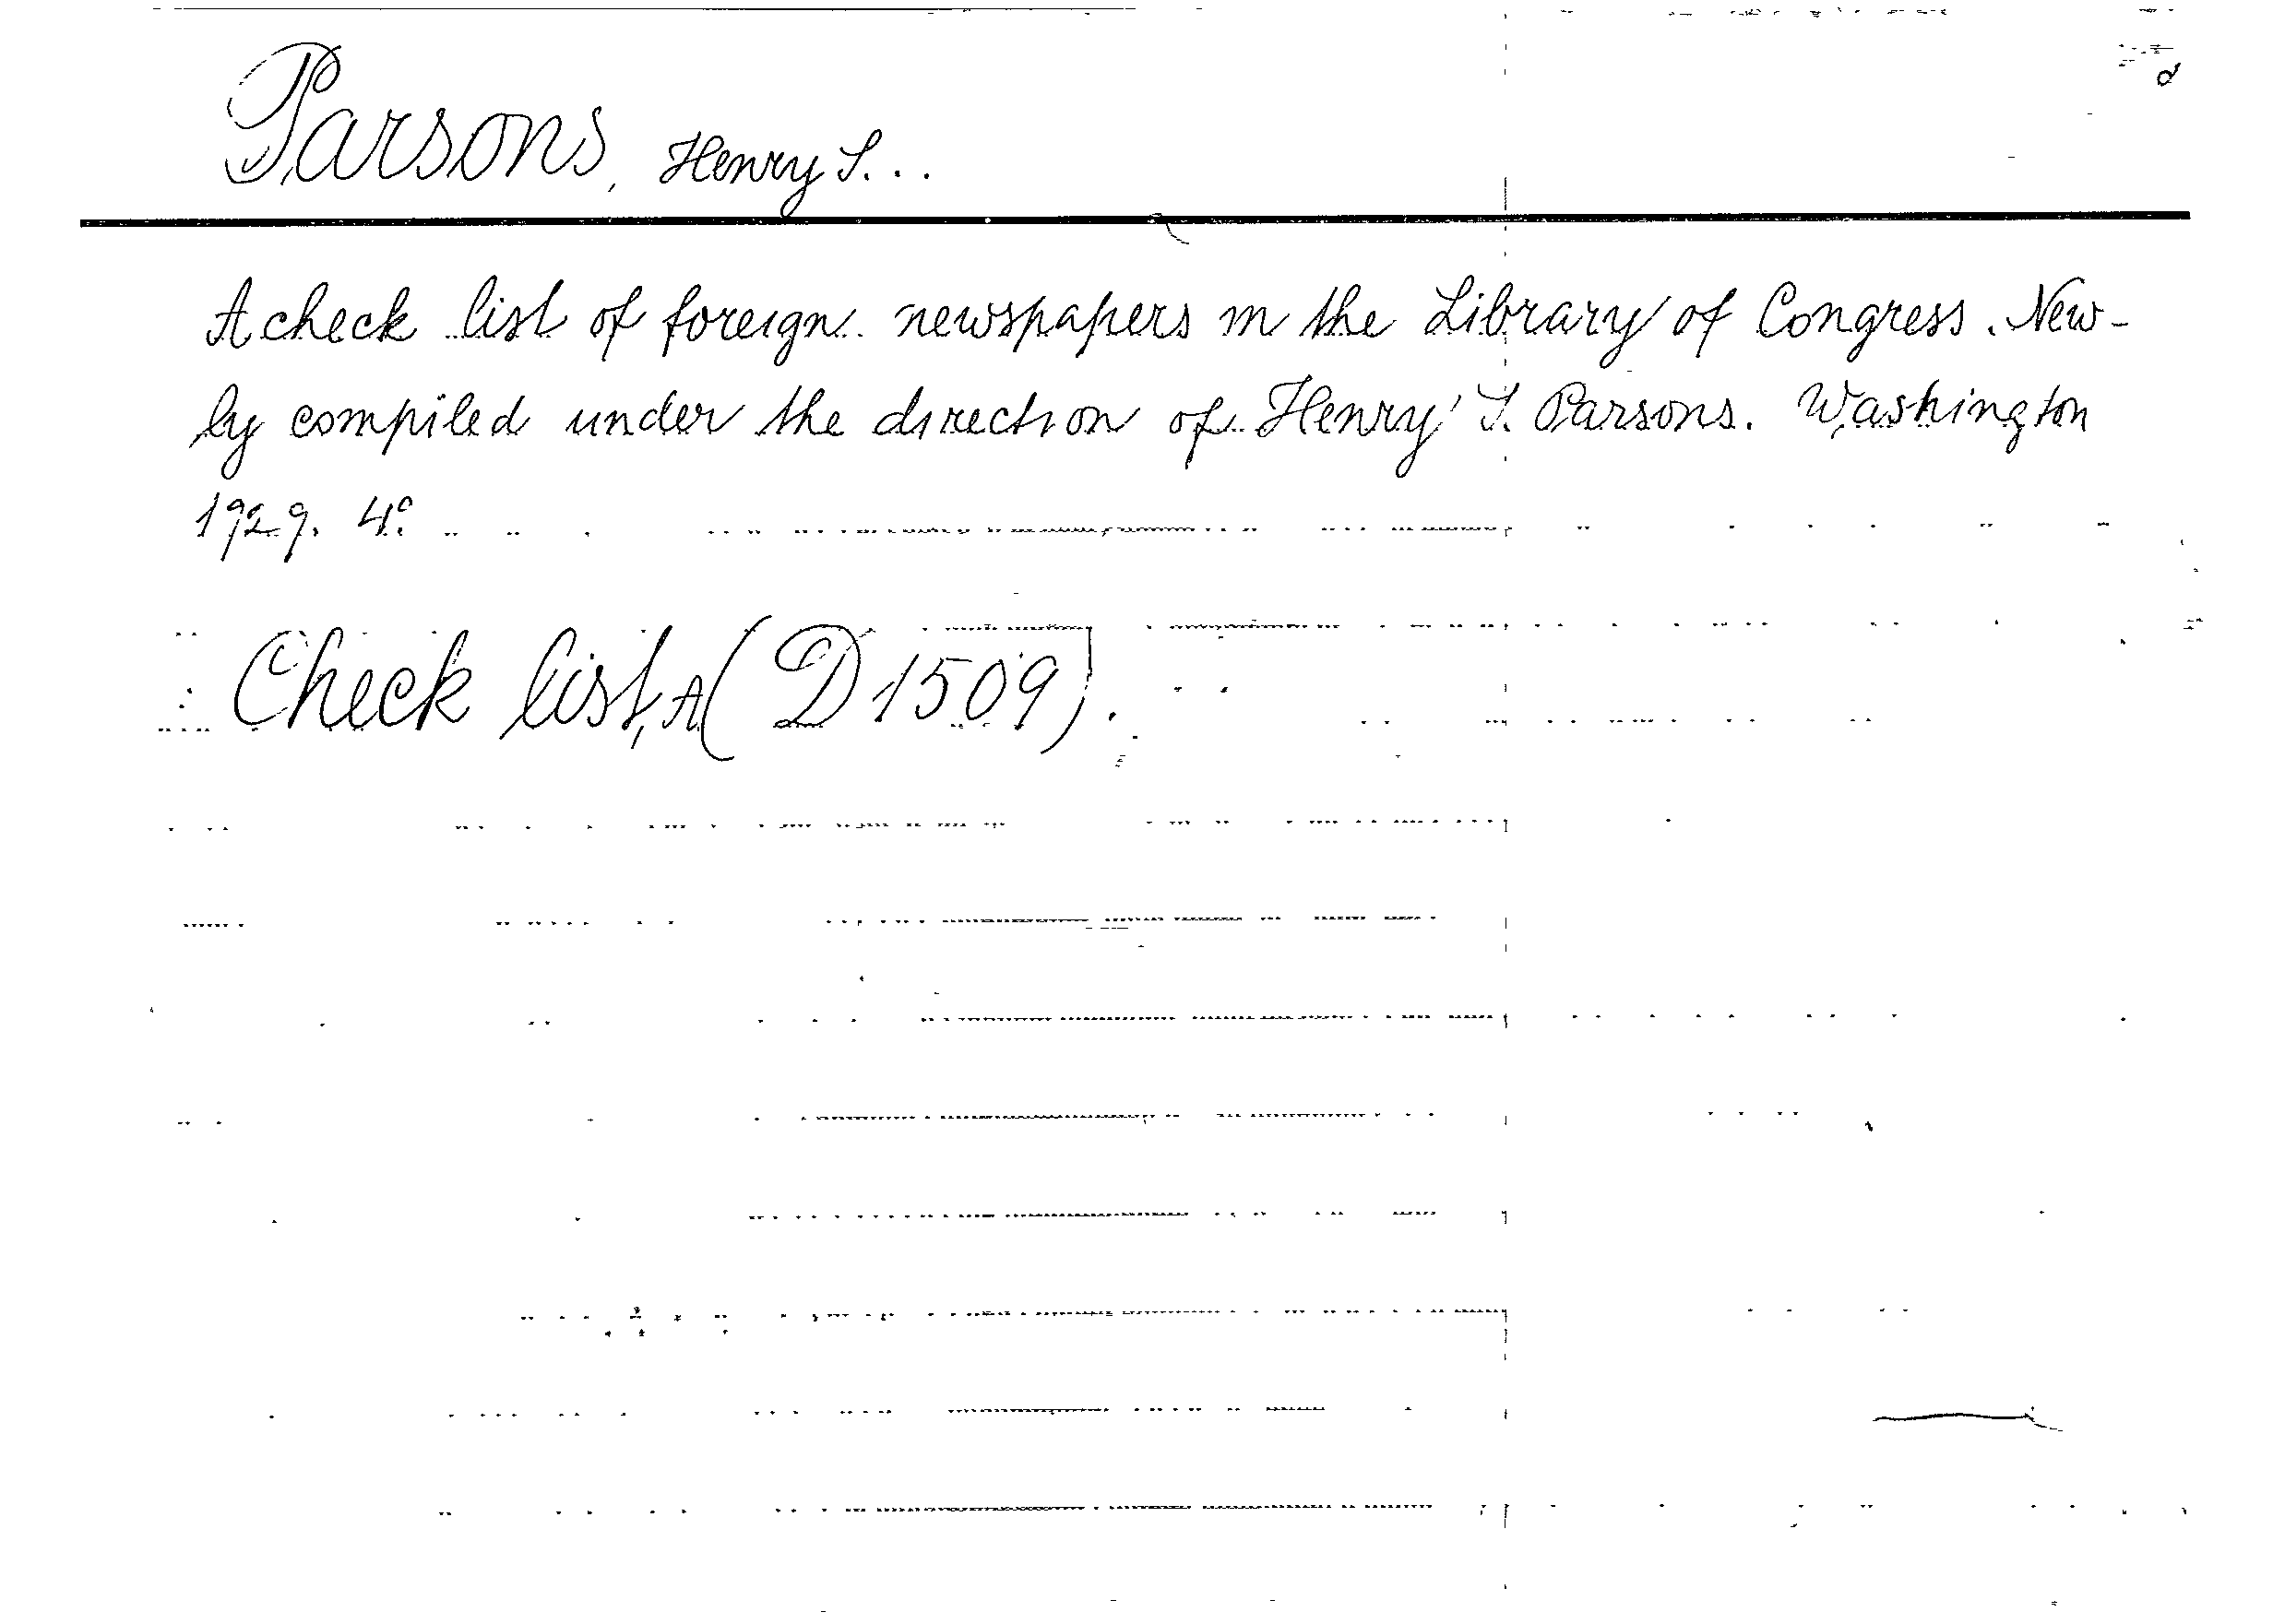 Parsons, Henry S...
A check list of foreign newspapers in the Library of Congress. New-
ly compiled under the direction of Henry S. Parsons. Washington
1929. 4°
Check list, A (D 1509).